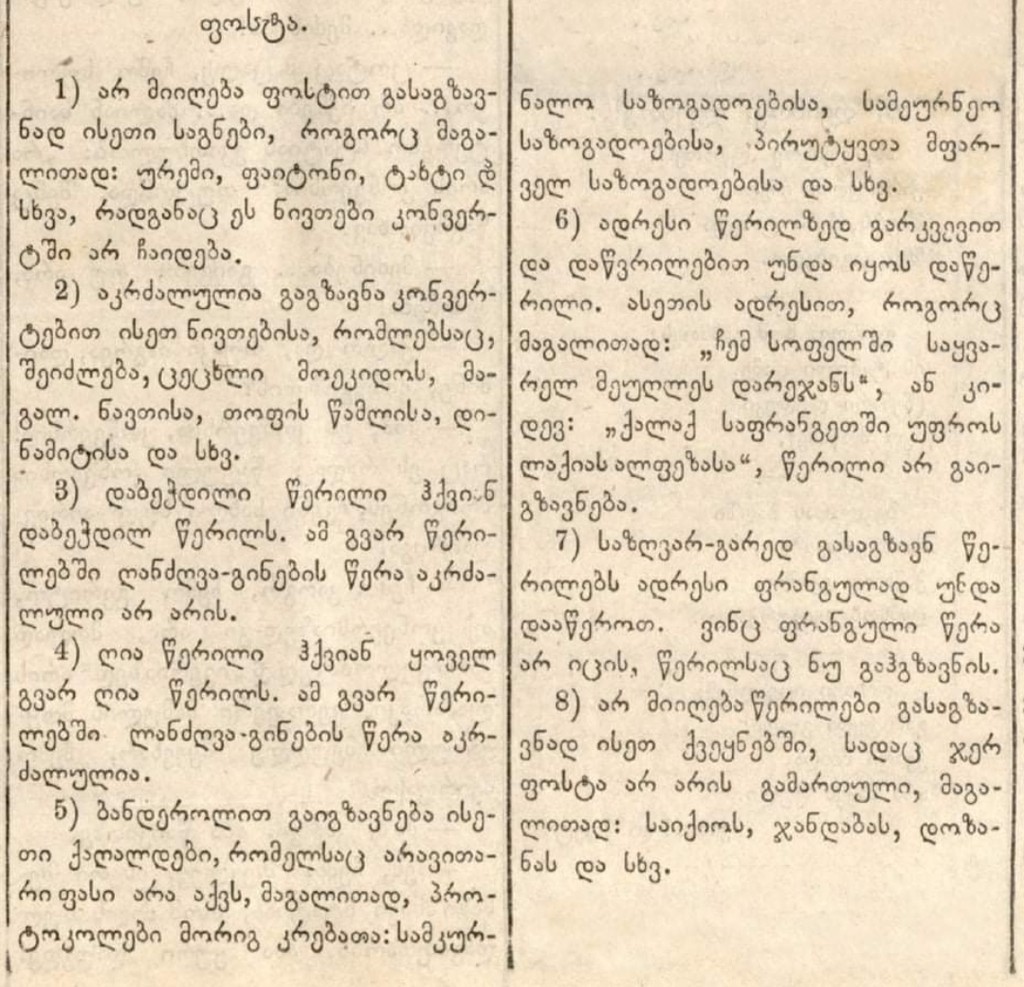 ფოსტა.
1) არ მიიღება ფოსტით გასაგზავ-
ნად ისეთი საგნები, როგორც მაგა-
ლითად: ურემი, ფაიტონი, ტახტი და
სხვა, რადგანაც ეს ნივთები კონვერ-
ტში არ ჩაიდება.
2) აკრძალულია გაგზავნა კონვერ-
ტებით ისეთ ნივთებისა, რომლებსაც,
შეიძლება, ცეცხლი მოეკიდოს, მა-
გალ. ნავთისა, თოფის წამლისა, დი-
ნამიტისა და სხვ.
3) დაბეჭდილი წერილი ჰქვიან
დაბეჭდილ წერილს. ამ გვარ წერი-
ლებში ღანძღვა-გინების წერა აკრძა-
ლული არ არის.
4) ღია წერილი ჰქვიან ყოველ
გვარ ღია წერილს. ამ გვარ წერი-
ლებში ლანძღვა-გინების წერა აკრ-
ძალულია.
5) ბანდეროლით გაიგზავნება ისე-
თი ქაღალდები, რომელსაც არავითა-
რი ფასი არა აქვს, მაგალითად, პრო-
ტოკოლები მორიგ კრებათა: სამკურ-
ნალო საზოგადოებისა, სამეურნეო
საზოგადოებისა, პირუტყვთა მფარ-
ველ საზოგადოებისა და სხვ.
6) ადრესი წერილზედ გარკვევით
და დაწვრილებით უნდა იყოს დაწე-
რილი. ასეთის ადრესით, როგორც
მაგალითად: „ჩემ სოფელში საყვა-
რელ მეუღლეს დარეჯანს“, ან კი-
დევ: „ქალაქ საფრანგეთში უფროს
ლაქიას ალფეზასა“, წერილი არ გაი-
გზავნება.
7) საზღვარ-გარედ გასაგზავნ წე-
რილებს ადრესი ფრანგულად უნდა
დააწეროთ. ვინც ფრანგული წერა
არ იცის, წერილსაც ნუ გაჰგზავნის.
8) არ მიიღება წერილები გასაგზა-
ვნად ისეთ ქვეყნებში, სადაც ჯერ
ფოსტა არ არის გამართული, მაგა-
ლითად: საიქიოს, ჯანდაბას, დოზა-
ნას და სხვ.